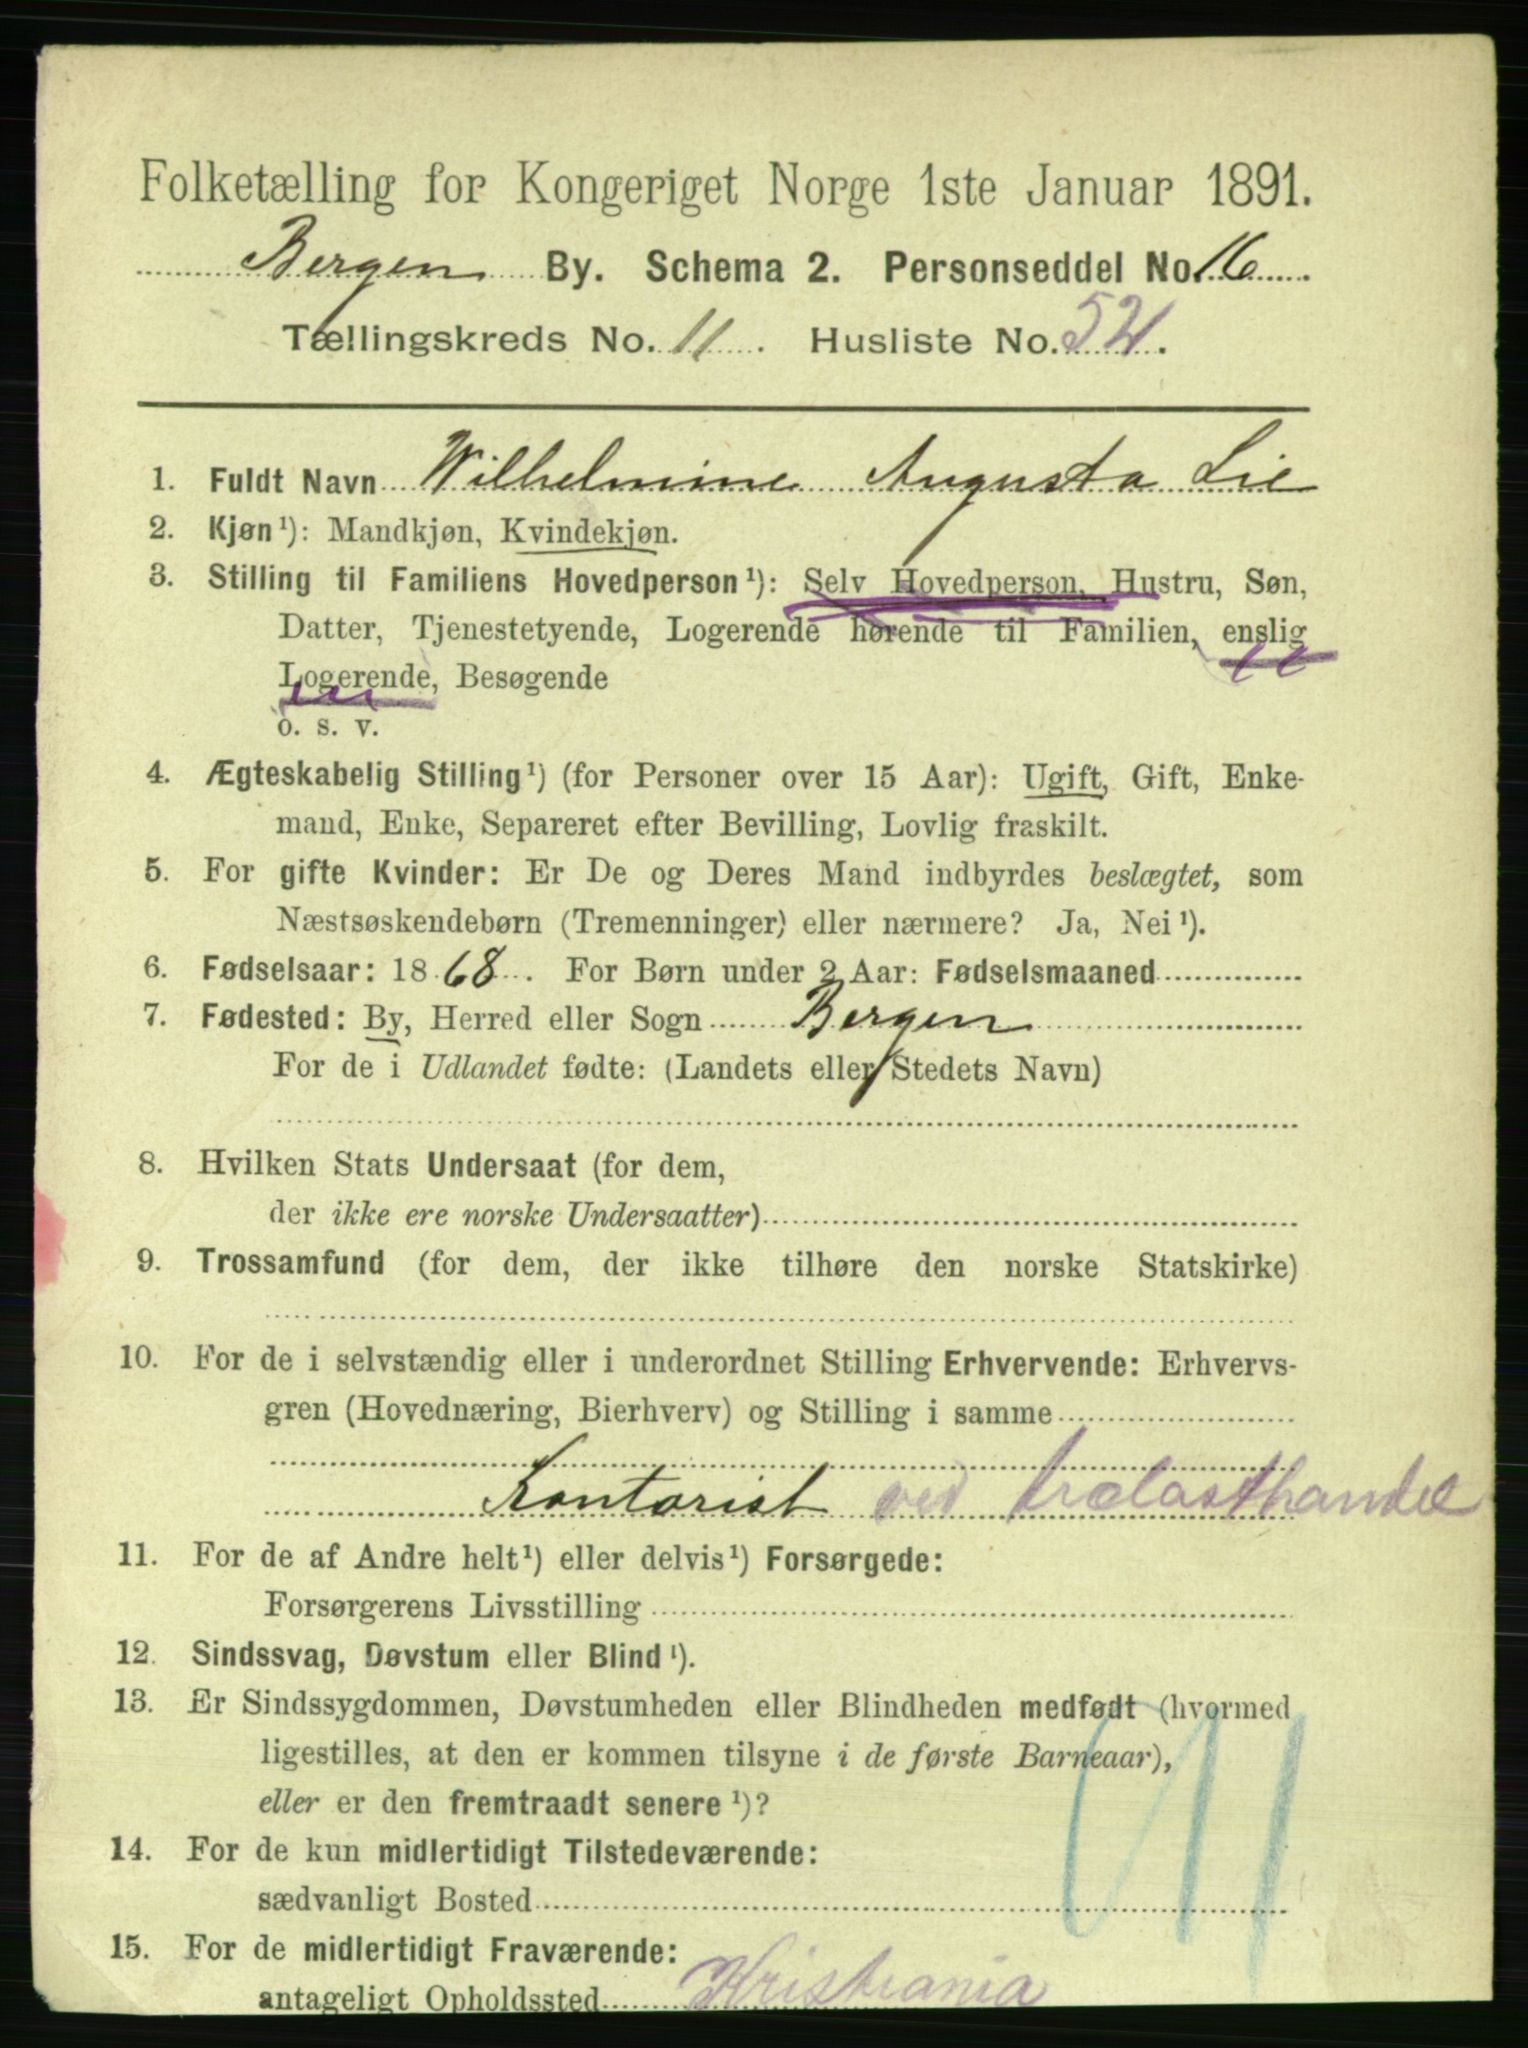 Folketælling for Kongeriget Norge 1ste Januar 1891.
Bergen By. Schema 2. Personseddel No. 16.
Tællingskreds No. 11. Husliste No. 52.
1. Fuldt Navn Wilhelmine Augusta Lie
2. Kjøn¹): Mandkjøn, Kvindekjøn.
3. Stilling til Familiens Hovedperson¹): Selv Hovedperson, Hustru, Søn,
Datter, Tjenestetyende, Logerende hørende til Familien, enslig
Logerende, Besøgende
o. s. v.
4. Ægteskabelig Stilling¹) (for Personer over 15 Aar): Ugift, Gift, Enke-
mand, Enke, Separeret efter Bevilling, Lovlig fraskilt.
5. For gifte Kvinder: Er De og Deres Mand indbyrdes beslægtet, som
Næstsøskendebørn (Tremenninger) eller nærmere? Ja, Nei¹).
6. Fødselsaar: 1868. For Børn under 2 Aar: Fødselsmaaned
7. Fødested: By, Herred eller Sogn Bergen
For de i Udlandet fødte: (Landets eller Stedets Navn)
8. Hvilken Stats Undersaat (for dem,
der ikke ere norske Undersaatter)
9. Trossamfund (for dem, der ikke tilhøre den norske Statskirke)
10. For de i selvstændig eller i underordnet Stilling Erhvervende: Erhvervs-
gren (Hovednæring, Bierhverv) og Stilling i samme
Kontorist ved trælasthandel
11. For de af Andre helt¹) eller delvis¹) Forsørgede:
Forsørgerens Livsstilling
12. Sindssvag, Døvstum eller Blind¹).
13. Er Sindssygdommen, Døvstumheden eller Blindheden medfødt (hvormed
ligestilles, at den er kommen tilsyne i de første Barneaar),
eller er den fremtraadt senere¹)?
14. For de kun midlertidigt Tilstedeværende:
sædvanligt Bosted
15. For de midlertidigt Fraværende:
antageligt Opholdssted Kristiania